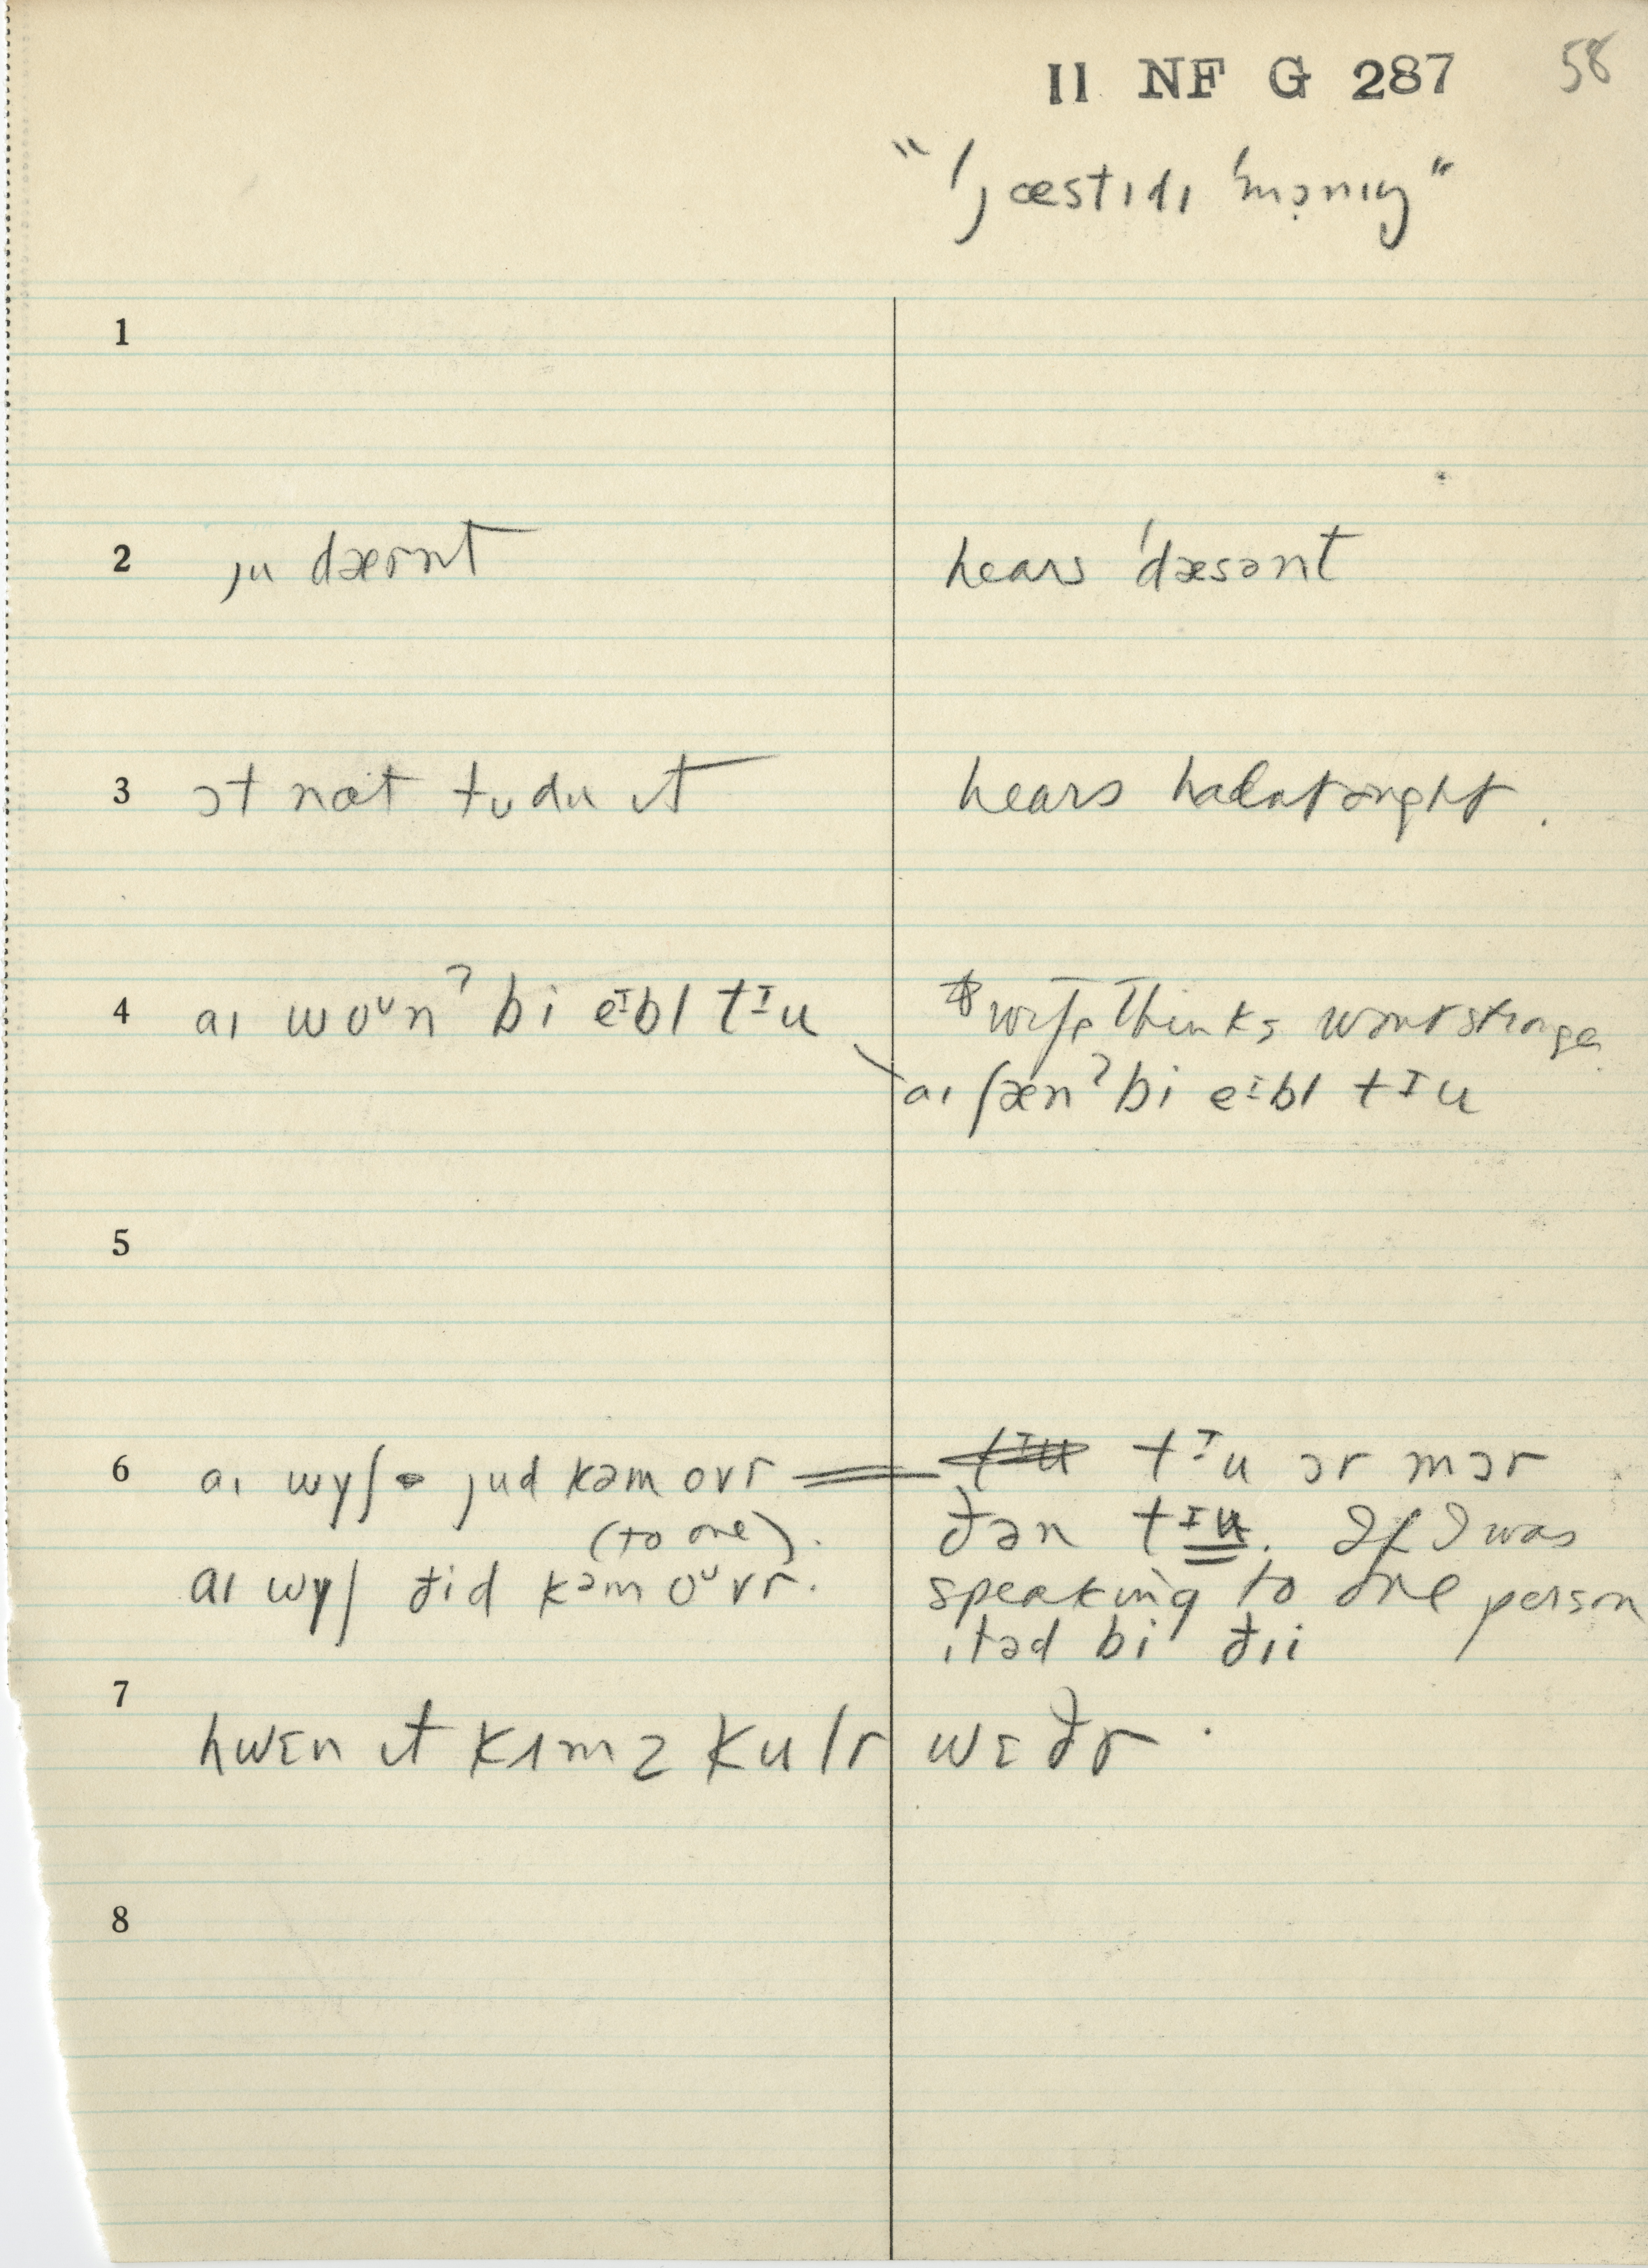 II NF G 287 58
"ˈjæstɪdɪ ˈmɔ̣nɪŋ"
1
2 ju dærnt hears ˈdæsənt
3 ɔt nɑt tʊ du ɪt hears hadnt ought.
4 aɪ woᶷnˀ bi eᴵbl tᴵu wife thinks wont stronger
aɪ ʃænˀ bi eᴵbl tᴵu
5
6 aɪ wyʃ jud kəm ovr tᴵu ɔr mɔr
(to one). ðən tᴵu. If I was
aɪ wyʃ ðid kəm oᶷvr. speaking to one person
ɪtəd bi ðɪi
7 hwɛn ɪt kʌmz kulr wɛðr.
8